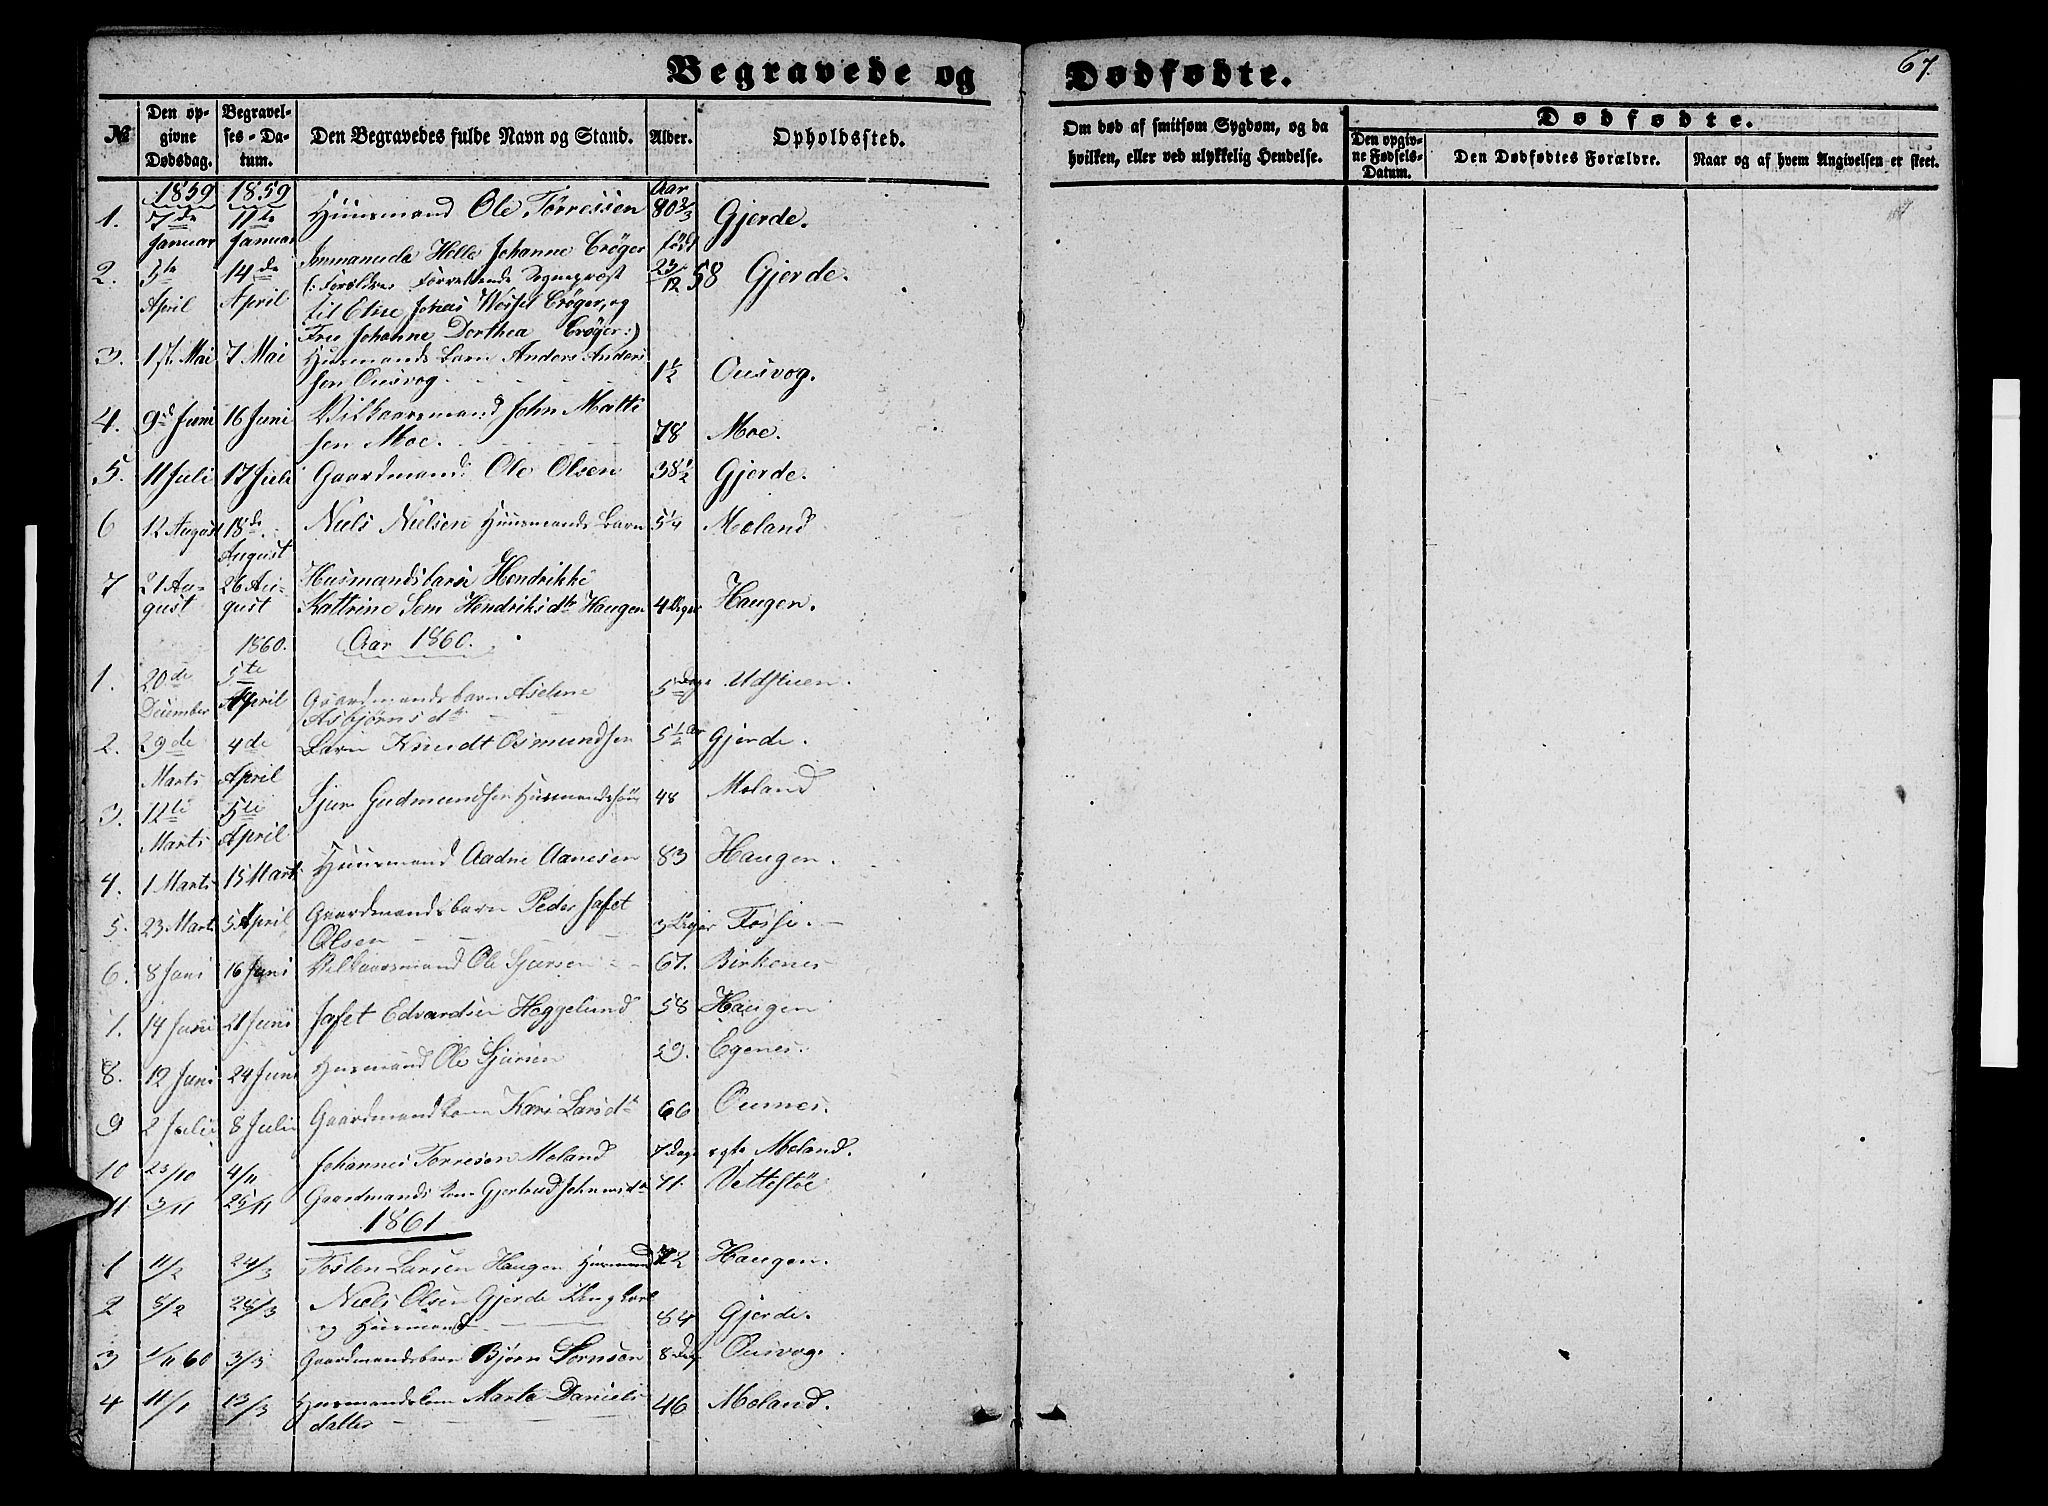 Begravede og Dødfødte.
67.
№ Den opgivne Dødsdag. Begravelses-Datum. Den Begravedes fulde Navn og Stand. Alder. Opholdssted. Om død af smitsom Sygdom, og da hvilken, eller ved ulykkelig Hendelse. Dødfødte. Den opgivne Fødsels-Datum. Den Dødfødtes Forældre. Naar og af hvem Angivelsen er skeet.
1859 1859 Aar
1. 7de Januar 11te Januar Huusmand Ole Tørressen 80 2/3 Gjerde.
2. 5te April 14de April Immanuela Helle Johanne Crøger født 23/12 58 Gjerde.
(: Forældre: Forrettende Sognepræst
til Etne, Jonas Wessel Crøger, og
Fru Johanne Dorthea Crøger :)
3. 1st Mai 7 Mai Huusmands Barn Anders Anders
sen Ousvog. 1 1/2 Ousvog.
4. 9d Juni 16 Juni Vilkaarsmand John Matti
sen Moe. 78 Moe.
5. 11 Juli 17 Juli Gaardmand Ole Olsen 38 1/2 Gjerde.
6 12 August 18de August Niels Nielsen Huusmands Barn 5/4 Moland
7 21 August 26 August Husmandsbarn Hendrikke
Kattrine Sem Henriksdtr Haugen 4 Uger Haugen.
1860. Aar 1860.
1. 20de December 5te April Gaardmandsbarn Aselene
Asbjørnsdtr 5 Dage Udstuen.
2. 29de Marts 4de April Barn Knudt Osmundsen 5 1/2 Aar Gjerde.
3. 12te Marts 5te April Sjur Gudmundsen Husmandssøn 48 Moland
4. 1 Marts 15 Marts Huusmand Aadne Aanesen 83 Haugen.
5. 23 Marts 5 April Gaardmandsbarn Peder Jafet
Olsen 3 Uger Fosse.
6. 8 Juni 16 Juni Vilkaarsmand Ole Sjursen 67. Birkenes
7. 14 Juni 21 Juni Jafet Edvardsen Heggelund 58 Haugen
8. 12 Juni 24 Juni Husmand Ole Sjursen 59. Egenes.
9 2 Juli 8 Juli Gaardmandkone Kari Larsdtr 66 Ounes.
10 25/10 4/11 Johannes Tørresen Moland 7 Dage ægte Moland.
11 3/11 25/11 Gaardmands kone Gjertrud Johnnesdtr 71. Vettestøe
1861
1 11/2 24/3 Tosten Larsen Haugen Husmand 72 Haugen.
2 8/2 28/3 Niels Olsen Gjerde
og Huusmand 84 Gjerde.
3 1/11 60 3/3 Gaardmandsbarn Bjørn Sørnsen 8 Dage Ousvog.
4 11/1 13/3 Husmandskone Marta Daniels
datter 46 Moland.